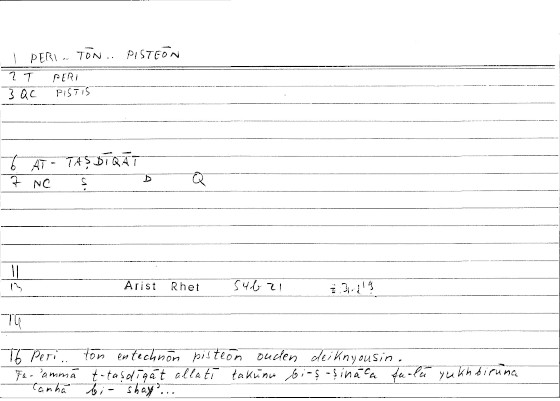 1 PERI.. TŌN.. PISTEŌN
2 T PERI
3 QC PISTIS
6 AT-TAṢDĪQĀT
7 NC Ṣ D Q
11
13 Arist Rhet 54b21
14
16 Peri.. tōn entechnōn pisteōn ouden deiknyousin.
Fa-'ammā t-taṣdīqāt allatī takūnu bi-ṣ-ṣināʿa fa-lā yukhbirūna
ʿanhā bi-shayʾ...